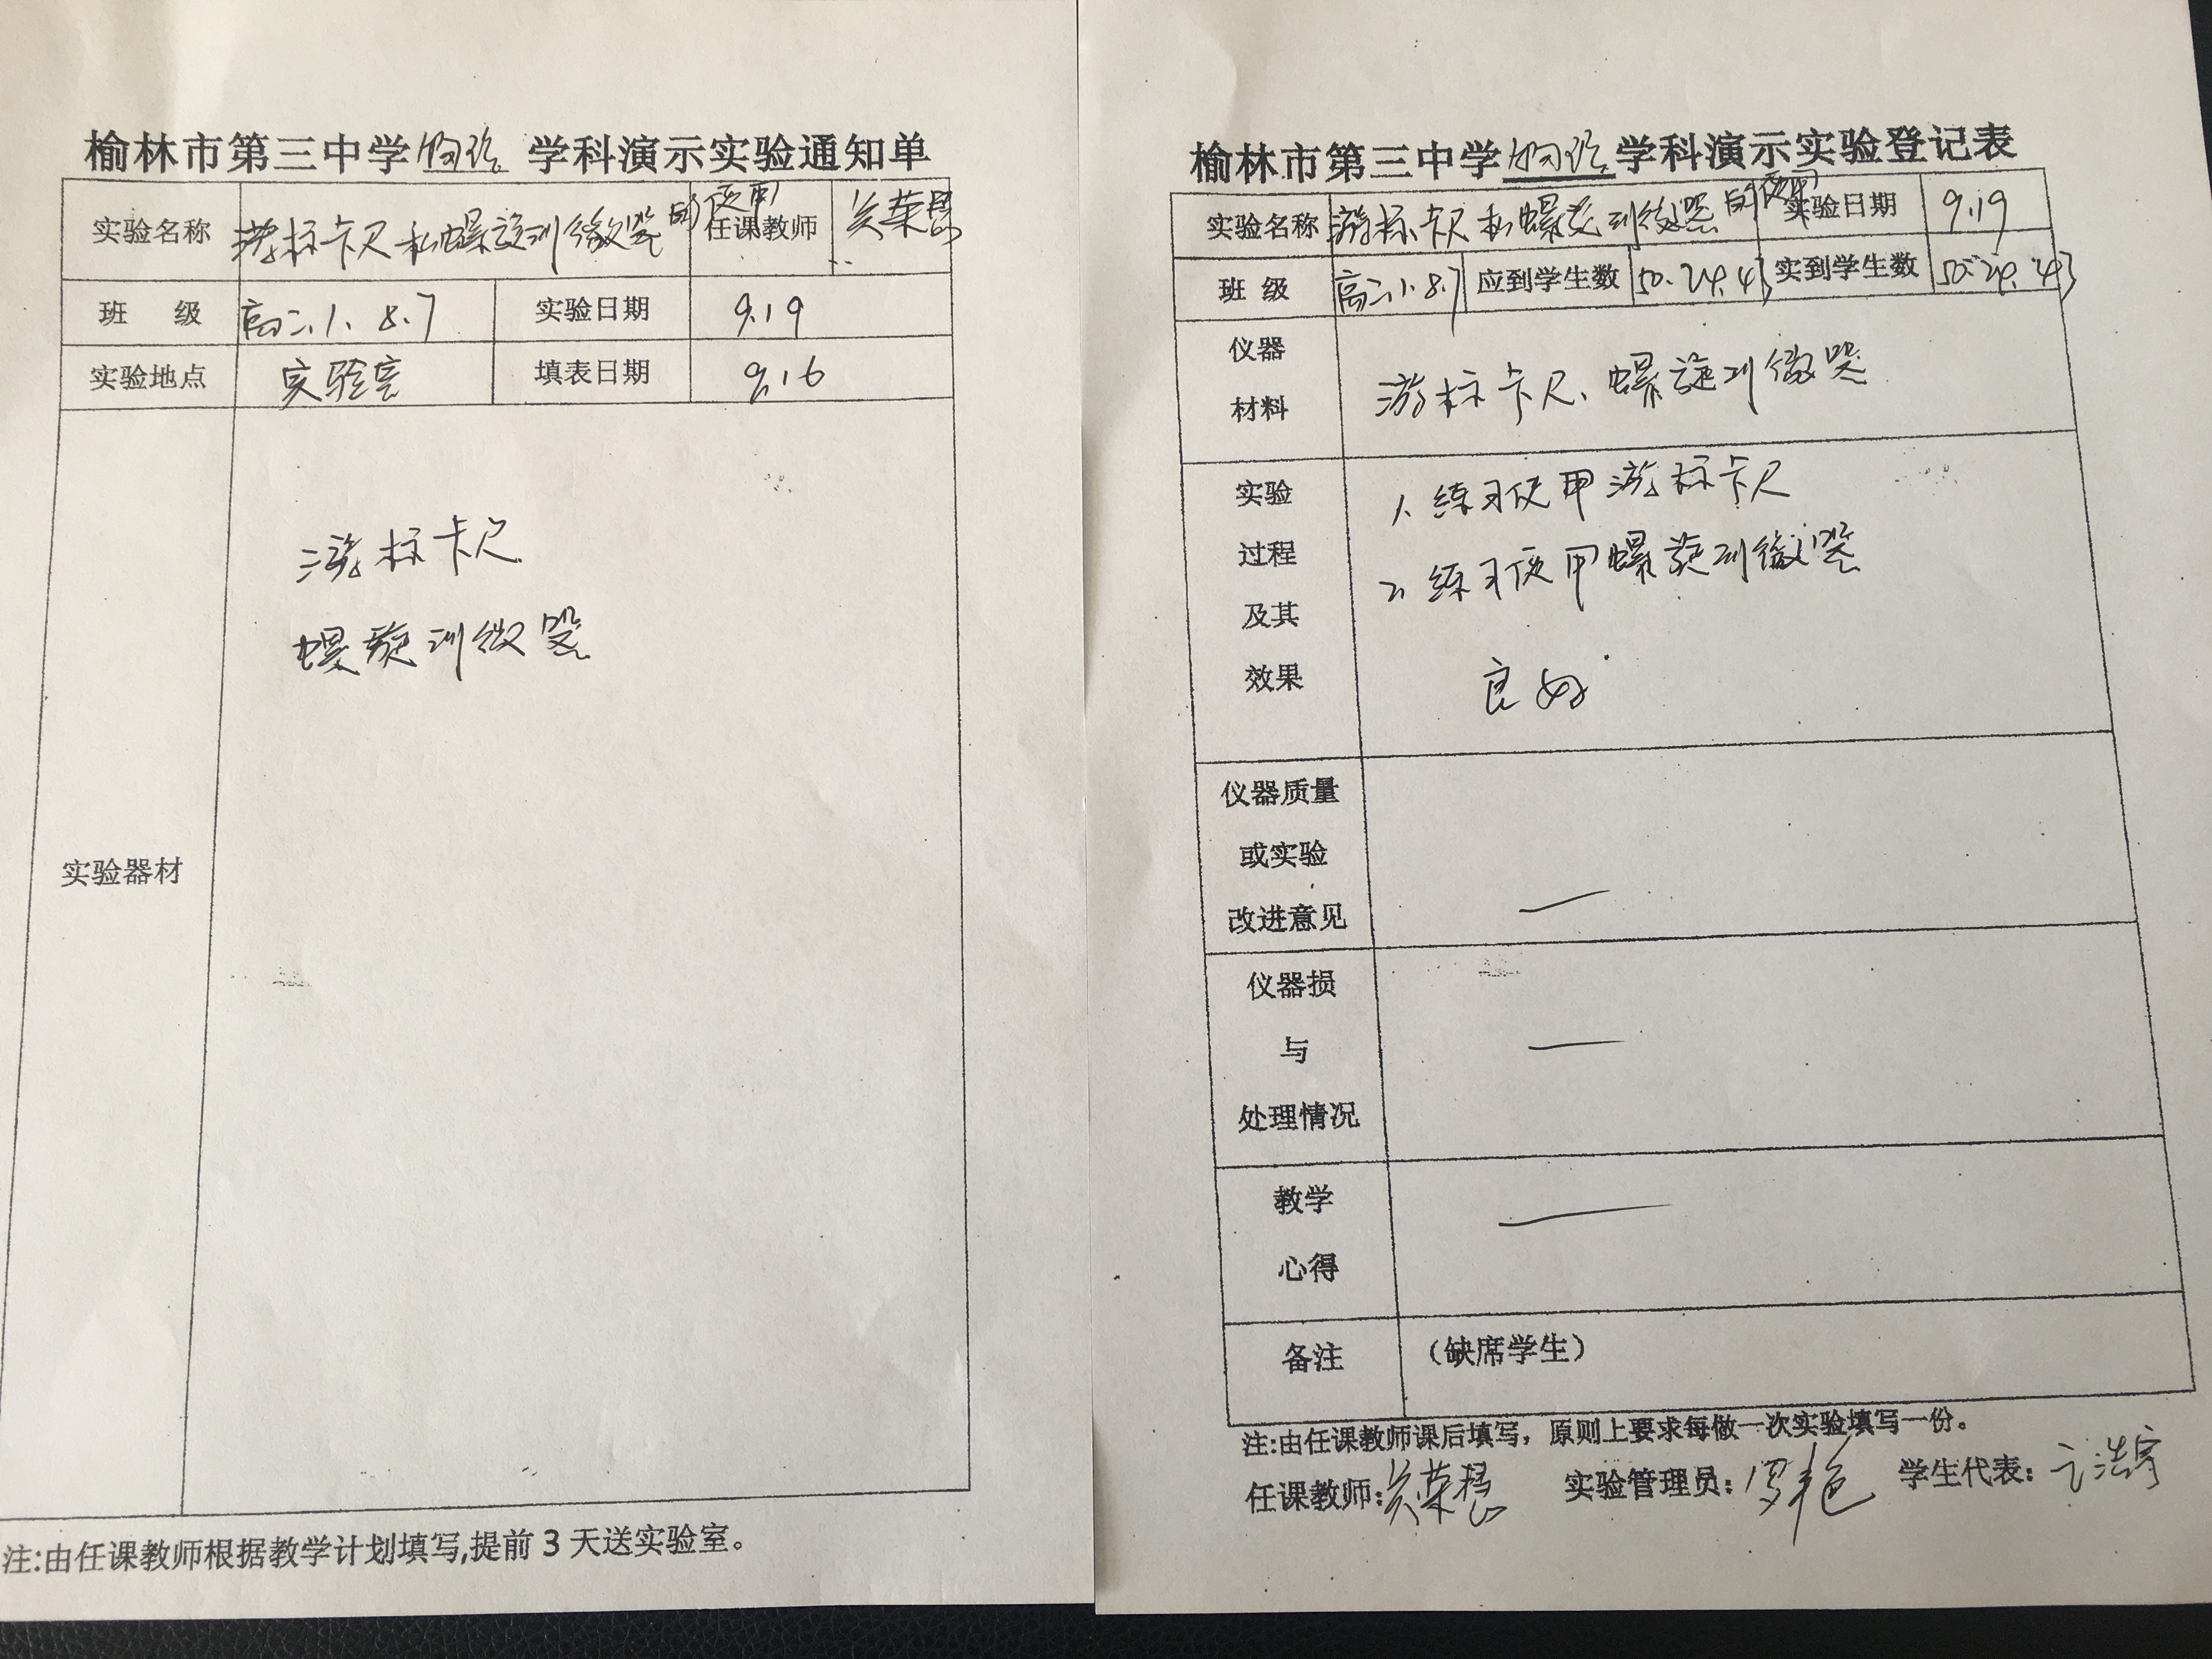 榆林市第三中学物理 学科演示实验通知单
实验名称 游标卡尺和螺旋测微器的使用 任课教师 吴荣慧
班 级 高二.1.8.7 实验日期 9.19
实验地点 实验室 填表日期 9.16
实验器材
游标卡尺
螺旋测微器
注:由任课教师根据教学计划填写,提前3天送实验室。
榆林市第三中学物理学科演示实验登记表
实验名称 游标卡尺和螺旋测微器的使用 实验日期 9.19
班 级 高二.1.8.7 应到学生数 50.29.43 实到学生数 50.29.43
仪器
材料
游标卡尺、螺旋测微器
实验
过程
及其
效果
1. 练习使用游标卡尺
2. 练习使用螺旋测微器
良好
仪器质量
或实验
改进意见
—
仪器损
与
处理情况
—
教学
心得
—
备注 (缺席学生)
注:由任课教师课后填写，原则上要求每做一次实验填写一份。
任课教师:吴荣慧 实验管理员: 学生代表: